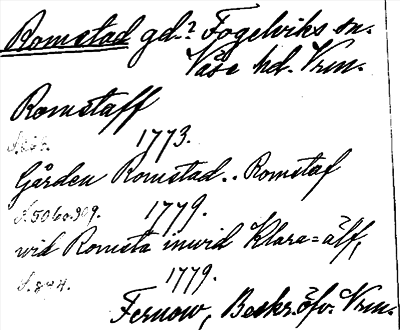 Romstad gd.? Fogelviks sn.
Väse hd. Vrm.
Romstaff
1773.
Gården Romstad.. Romstaf
S. 506 o. 909. 1779.
wid Romsta inwid Klara=älf,
S. 844. 1779.
Fernow, Beskr. öfv. Vrm.